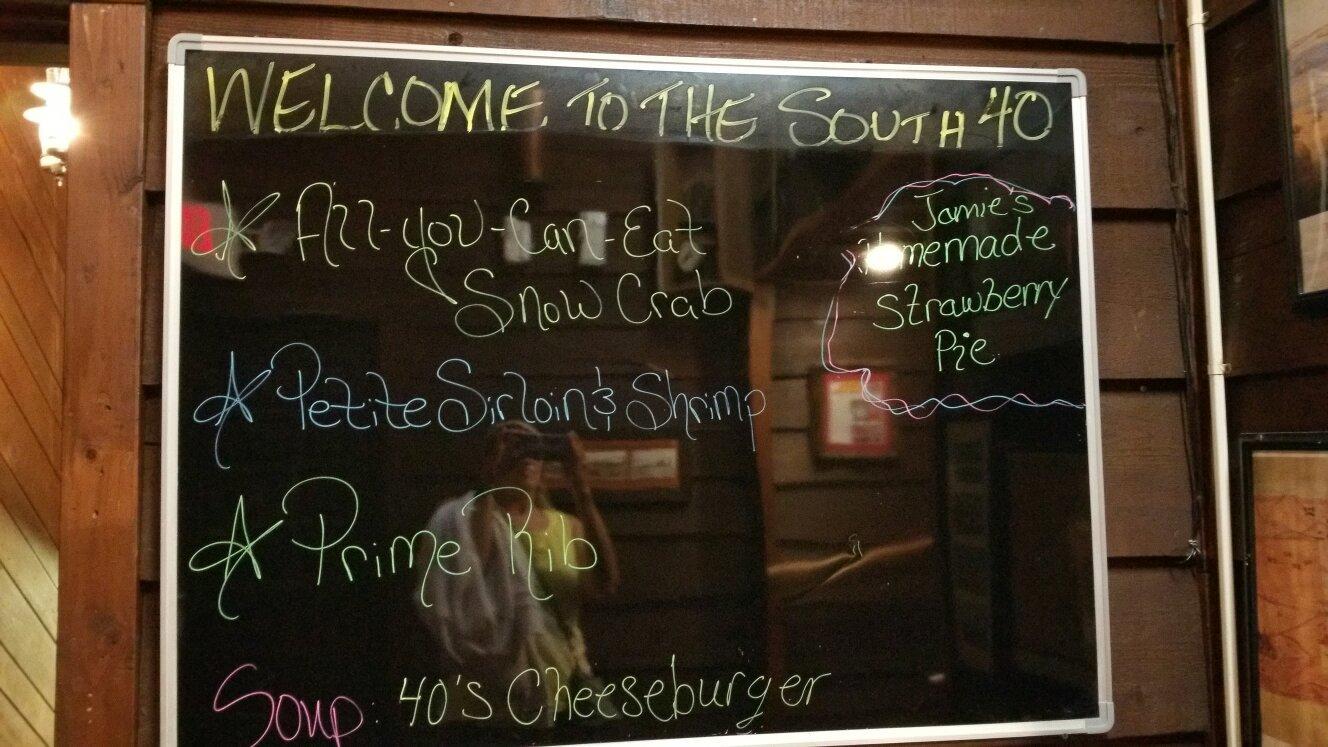 WELCOME TO THE SOUTH 40
All-you-Can-Eat
Snow Crab
Petite Sirloin & Shrimp
Prime Rib
Soup: 40's Cheeseburger
Jamie's
Homemade
Strawberry
Pie